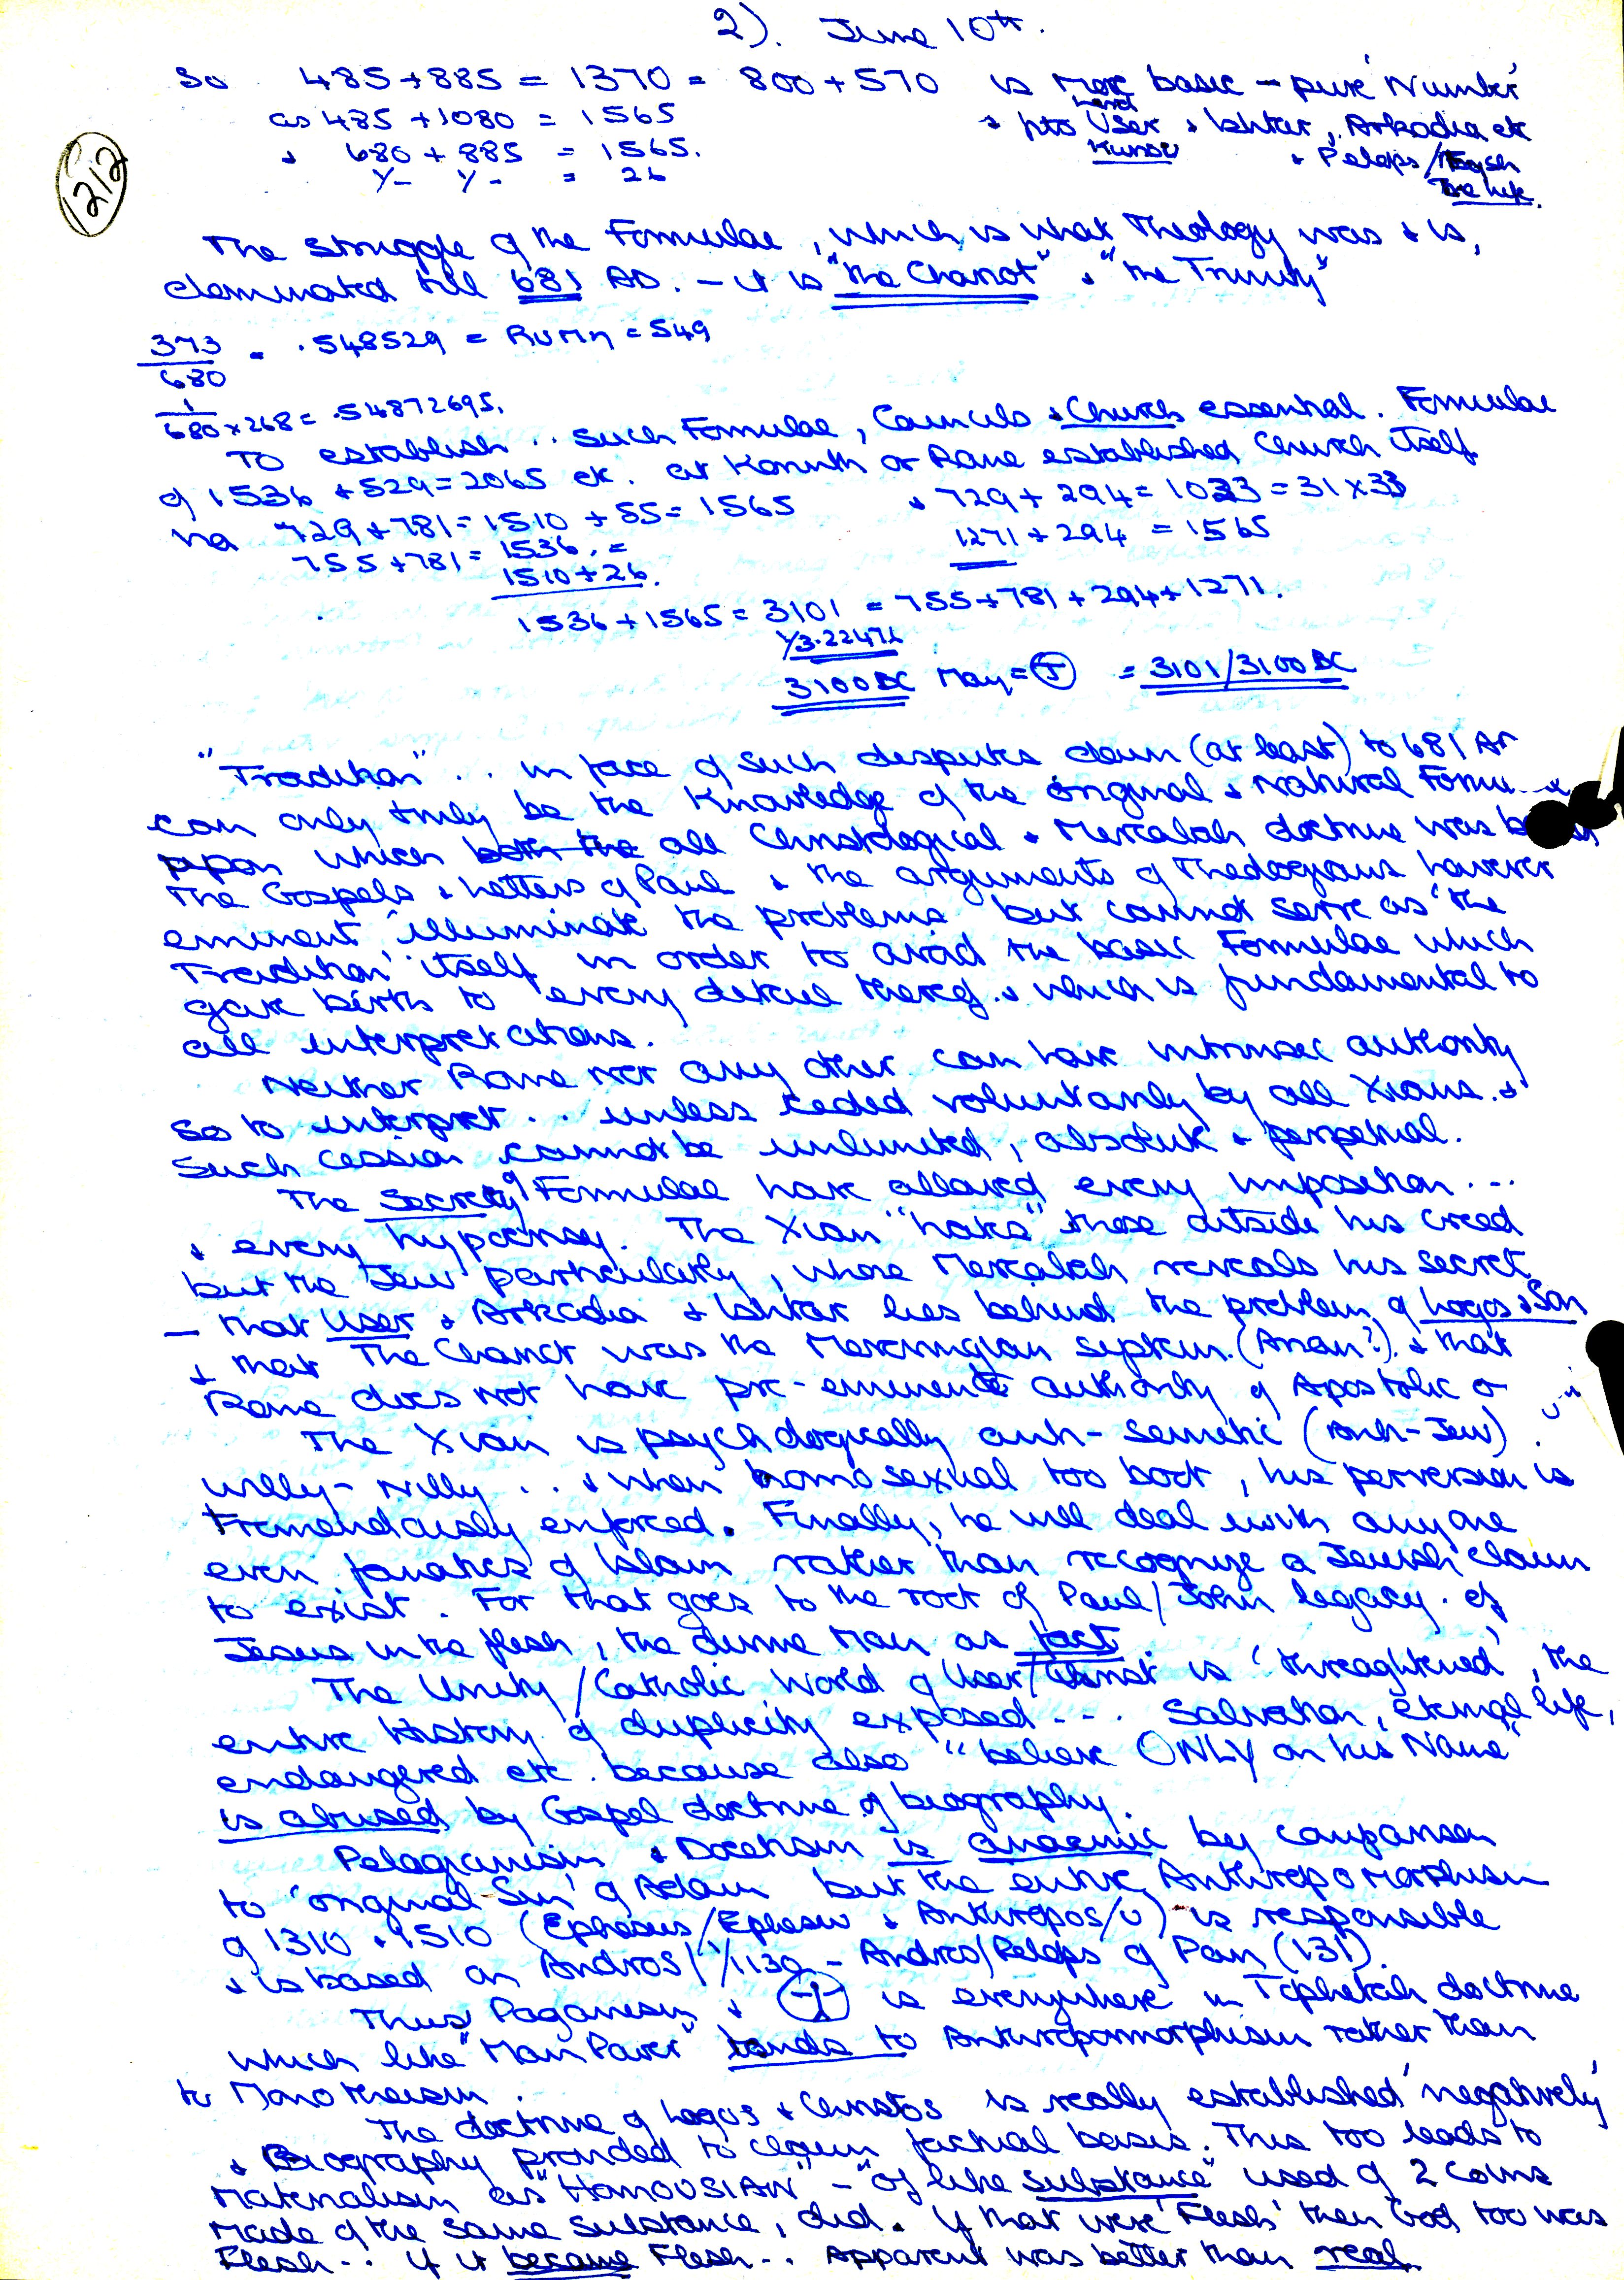 2). June 10th.
So 485+885 = 1370 = 800+570 is More basic – pure 'Number'
as 485+1080 = 1565
+ into User + Ishtar, Arkadia etc
+ 680 + 885 = 1565.
+ Pelops
Y– Y– = 26
1212
The Struggle of the Formulae, which is what Theology was + is,
dominated till 681 AD. – it is "the Chariot" + "the Trinity"
373/680 = .548529 = = 549
1/680 × 268 = .54872695.
To establish .. such Formulae, Councils + Church essential. Formulae
of 1536 + 529 = 2065 etc. at Korinth or Rome established Church itself
via 729+781 = 1510 + 55 = 1565
+ 729 + 294 = 1023 = 31×33
755+781 = 1536. =
1271 + 294 = 1565
1510+26.
1536 + 1565 = 3101 = 755+781+294+1271.
3100 BC May = = 3101/3100 BC
"Tradition" .. in face of such disputes down (at least) to 681 AD
can only truly be the Knowledge of the original + natural
upon which both the all Christological + Mercabah doctrine was
The Gospels + Letters of Paul + the arguments of Theologians however
eminent, illuminate the problems but cannot serve as 'the
Tradition' itself in order to avoid the basic Formulae which
gave birth to every detail thereof. + which is fundamental to
all interpretations.
Neither Rome nor any other can have intrinsic authority
so to interpret .. unless ceded voluntarily by all Xians. +
Such cession cannot be unlimited, absolute + perpetual.
The Secrecy of Formulae have allowed every imposition ...
+ every hypocrisy. The Xian "hates" those outside his creed
but the Jew particularly, whose Mercabah reveals his secret
– that User + Arkadia + Ishtar lies behind the problem of Logos + Son
+ that The Chariot was the Merovingian system. (Arian?) + that
Rome does not have pre-eminent authority of Apostolic
The Xian is psychologically anti-semitic (Anti-Jew)
willy-nilly .. + when homosexual too boot, his perversion is
Tremendously enforced. Finally, he will deal with anyone
even fanatics of Islam rather than recognize a Jewish claim
to exist. For that goes to the root of Paul/John legacy. of
Jesus in the flesh, the divine Man as fact
The Unity/Catholic World of User/Christ is 'threaghtened', the
entire History of duplicity exposed --. Salvation, eternal life,
endangered etc. because also "believe ONLY on his Name"
is abused by Gospel doctrine of biography.
Pelagianism + Docetism is anaemic by comparison
to 'original Sin' of Adam but the entire Anthropomorphism
of 1310 + 1510 (Ephesus/Ephesu + Anthropos/u) is responsible
+ is based on Andros 1/1130 – Andro/Pelops of Pan (131).
Thus Paganism + is everywhere in Tiphetah doctrine
which like "Man Power" tends to Anthropomorphism rather than
to Monotheism.
The doctrine of Logos + Christos is really established 'negatively'
+ Biography provided to claim factual basis. This too leads to
Materialism as "HOMOUSIAN" – "of like substance" used of 2 coins
made of the same substance, did. If that were 'Flesh' then God too was
Flesh .. if it became Flesh .. Apparent was better than real